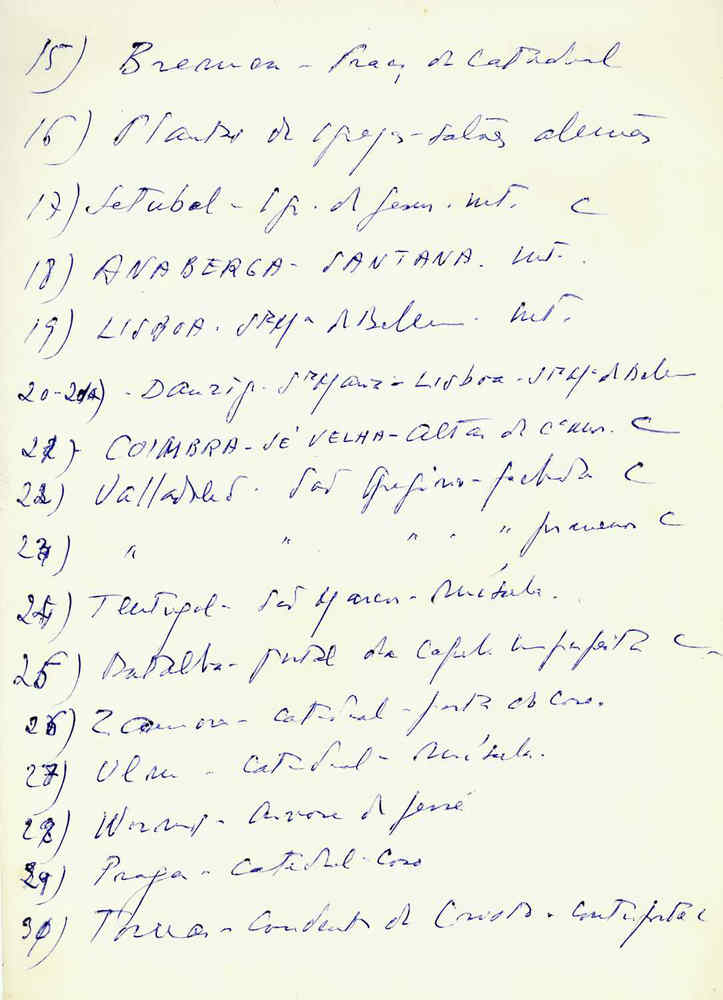 15) Bremen - Praça da Catedral
16) Plantas de igrejas-salões alemãs
17) Setubal - Igr. de Jesus. int. C
18) ANABERGA - SANTANA. int.
19) LISBOA. Sta Ma de Belem. int.
20-21) - Danzig. Sta Maria - Lisboa - Sta Ma de Belem
22) COIMBRA - SÉ VELHA - Altar C
23) Valladolid. São Gregorio - fachada C
24) " " " . " C
25) Tentugal - São Marcos - Mísula.
25) Batalha - portal da Capela imperfeita C
26) Zamora - catedral - porta do coro.
27) Ulm - Catedral - Mísula.
28) Worms - Arvore de Jessé
29) Praga - Catedral - Coro
30) Tomar - Convento de Cristo -